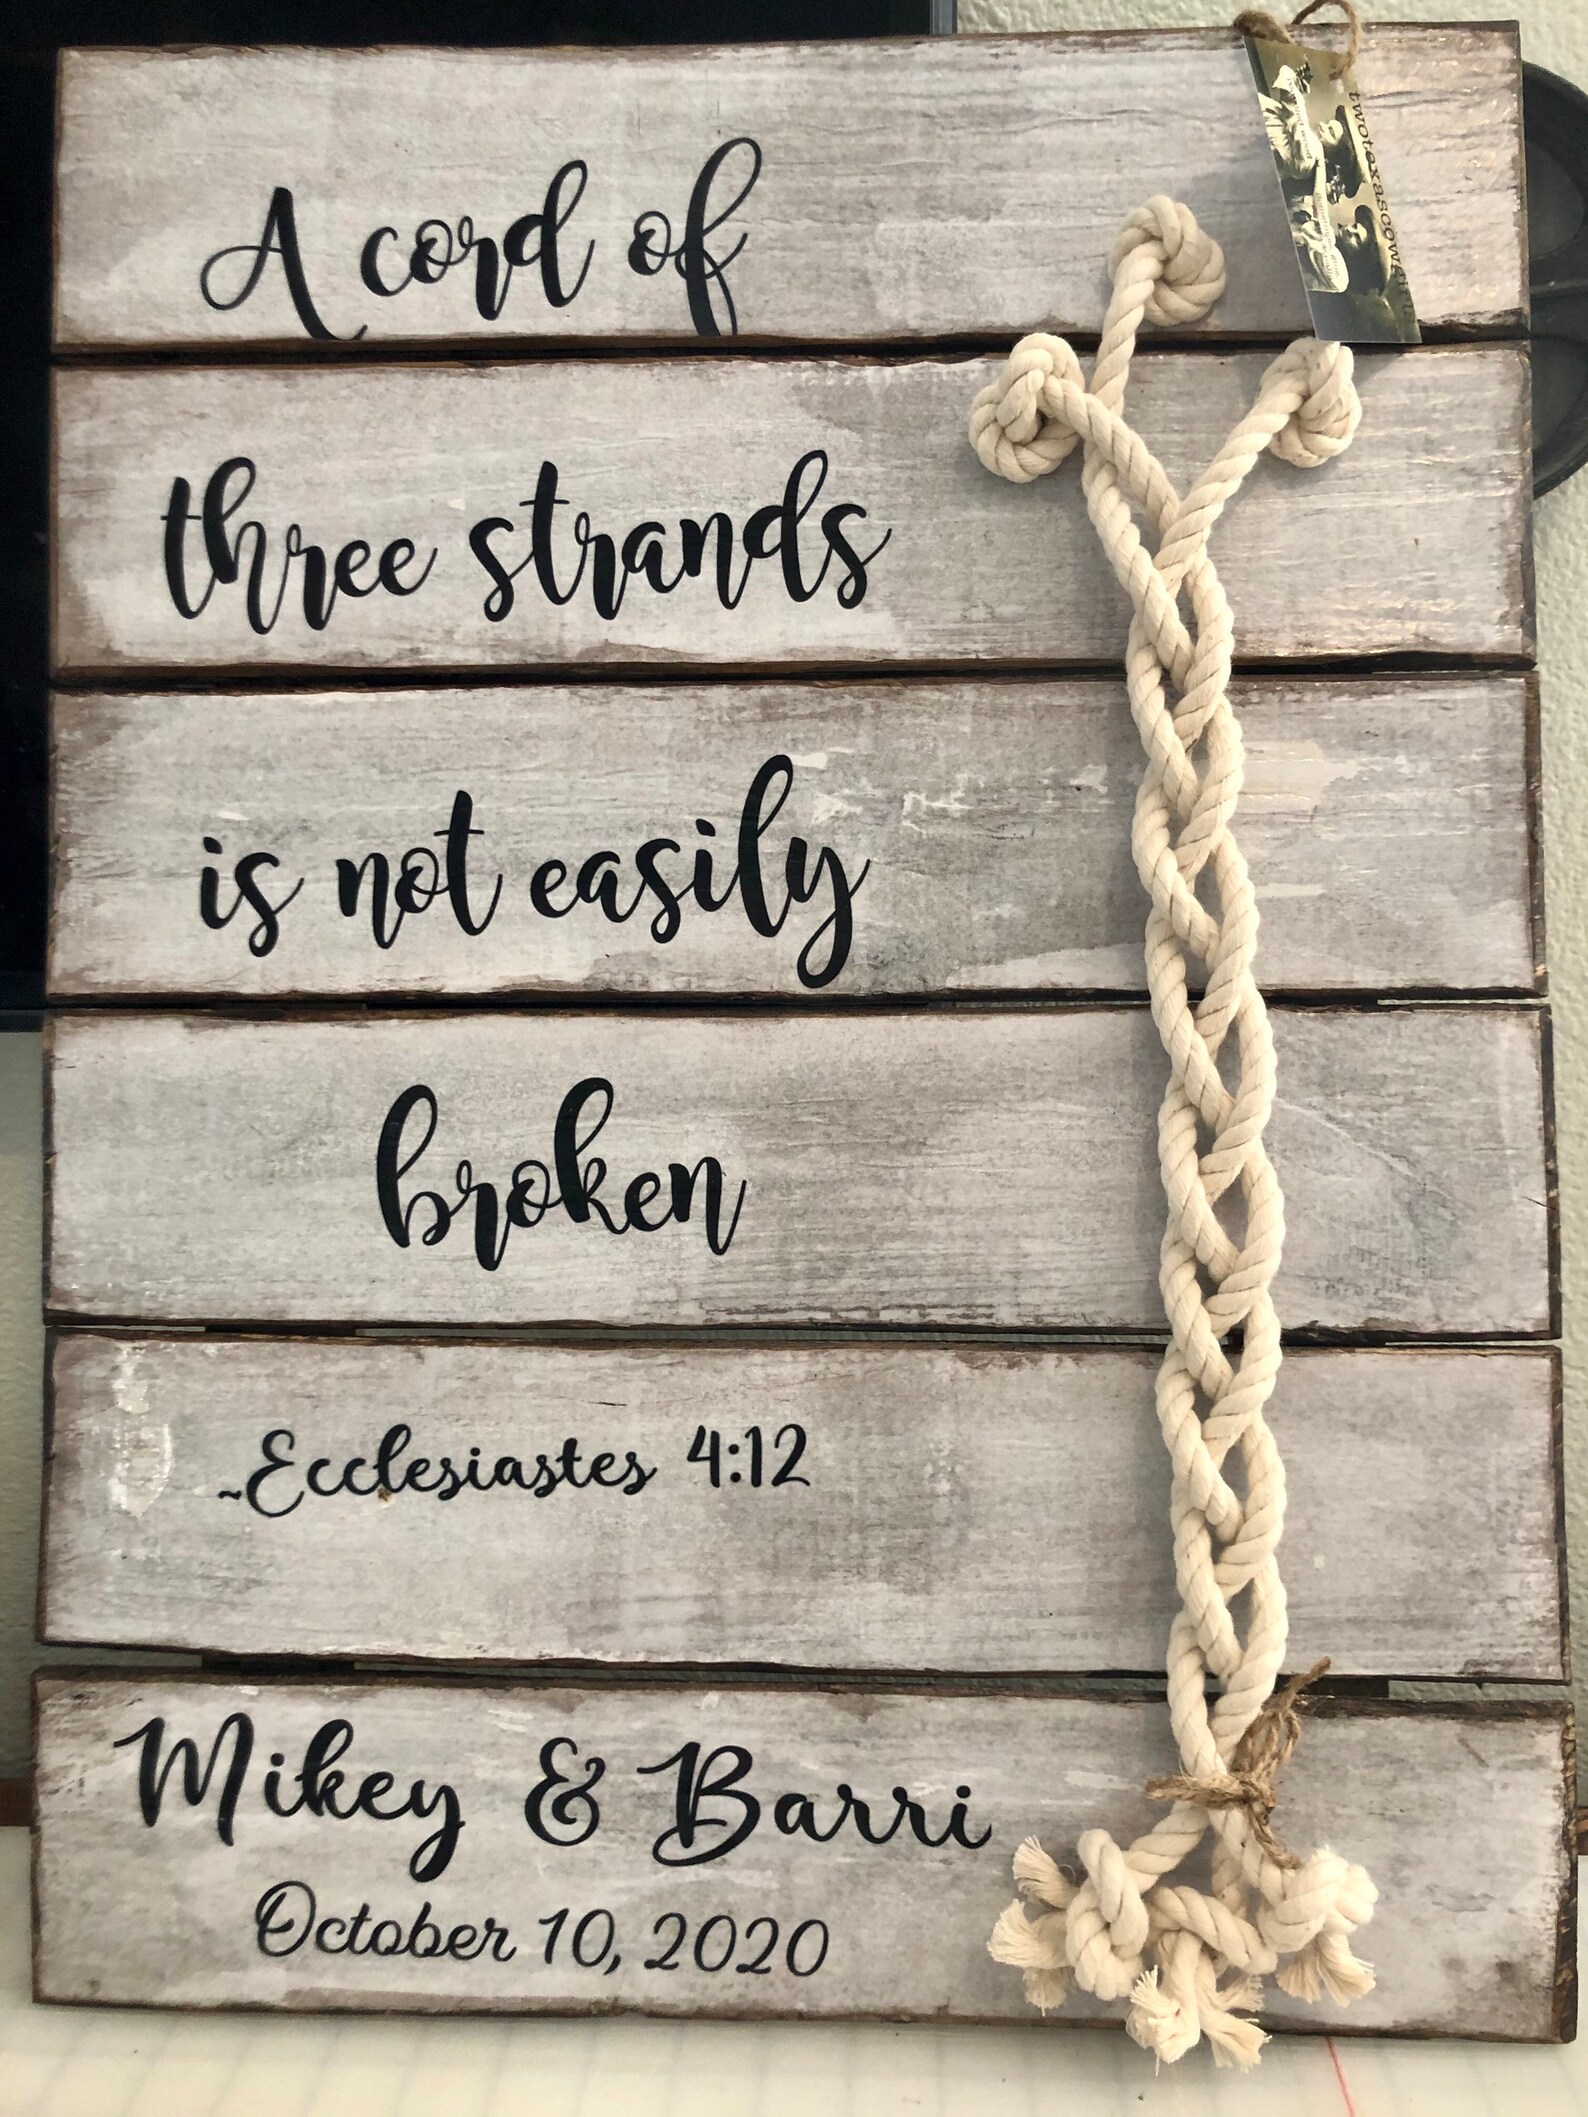 A cord of
three strands
is not easily
broken
~Ecclesiastes 4:12
Mikey & Barri
October 10, 2020